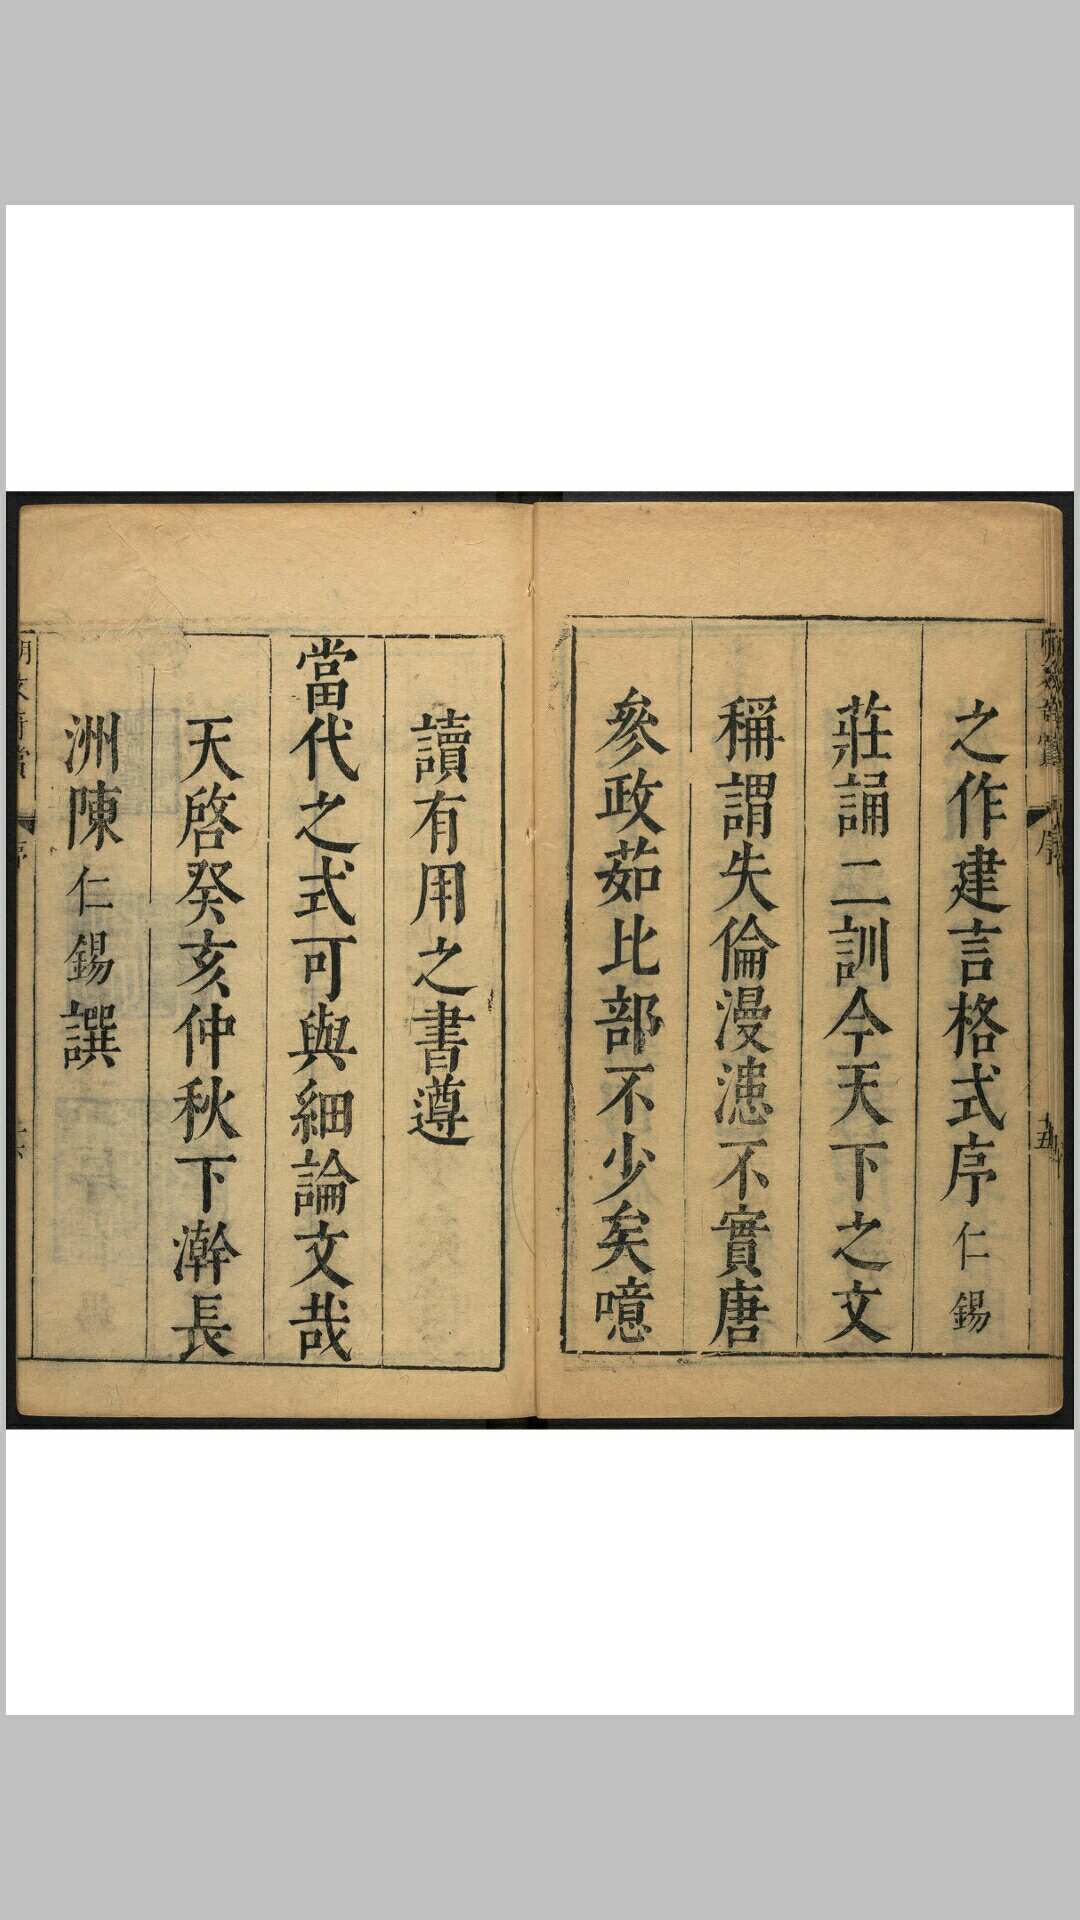 之作建言格式序仁錫
莊誦二訓今天下之文
稱謂失倫漫漶不實唐
參政茹比部不少矣噫
讀有用之書遵
當代之式可與細論文哉
天啓癸亥仲秋下澣長
洲陳仁錫譔